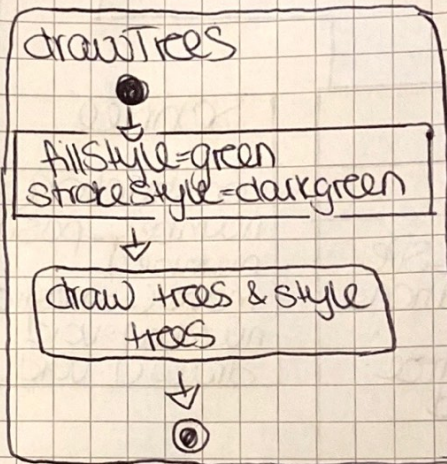 drawTrees
fillStyle=green
strokeStyle=darkgreen
draw trees & style
trees